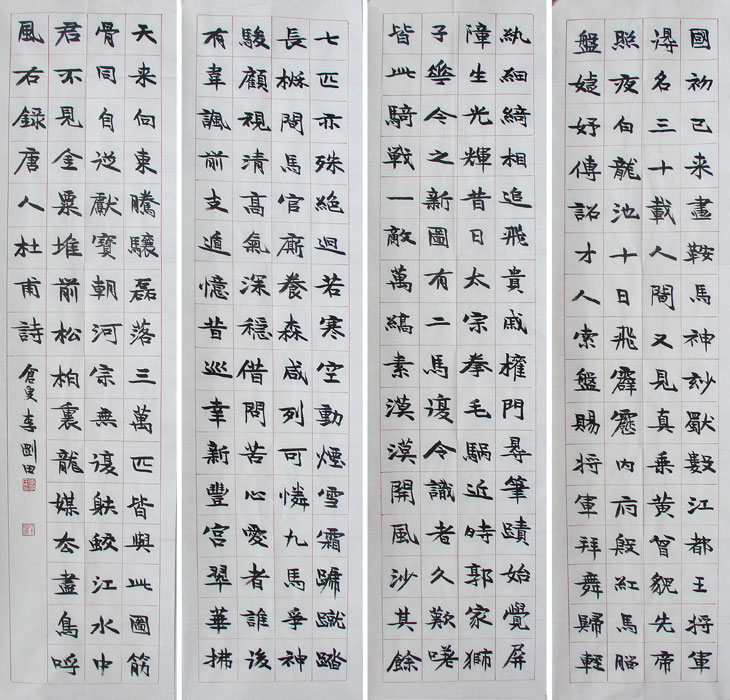 國初已来畫鞍馬神玅獸數江都王将軍
得名三十載人間又見真乗黄曾貌先帝
照夜白龍池十日飛霹靂内府殷紅馬腦
盤婕妤傳詔才人索盤賜将軍拜舞歸輕
紈細綺相追飛貴戚權門尋筆蹟始覺屏
障生光輝昔日太宗拳毛騧近時郭家獅
子蕐令之新圖有二馬復令識者久歎嗟
皆此騎戰一敵萬縞素漠漠開風沙其餘
七匹亦殊絶迴若寒空動煙雪霜蹄蹴踏
長楸間馬官廝養森咸列可憐九馬爭神
駿顧視清高氣深穩借問苦心愛者誰後
有韋諷前支遁憶昔巡幸新豐宫翠華拂
天来向東騰驤磊落三萬匹皆與此圖筋
骨同自從獻寶朝河宗無復射蛟江水中
君不見金粟堆前松柏裏龍媒去盡鳥呼
風右録唐人杜甫詩
倉叟李剛田